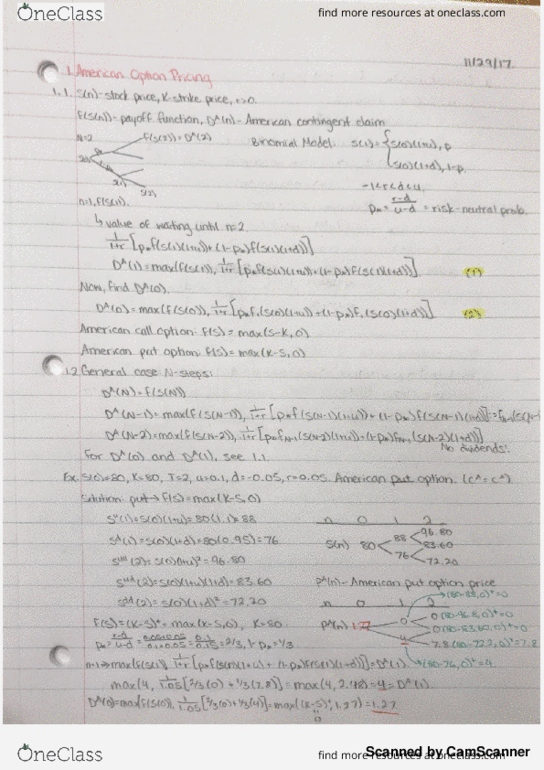 OneClass
find more resources at oneclass.com
11/29/17
1. American Option Pricing
1.1. S(n)-stock price, K-strike price, r>0
f(S(n))-payoff function, D^A(n)-American contingent claim
N=2 f(S(2))=D^A(2) Binomial Model: S(1)={S(0)(1+u), p
S(0)(1+d), 1-p
S(2)
-1<r<d<u
n=1, f(S(1)) p* = (r-d)/(u-d) = risk-neutral prob.
↳ value of waiting until n=2
1/(1+r) [p*f(S(1)(1+u))+(1-p*)f(S(1)(1+d))]
D^A(1)=max(f(S(1)), 1/(1+r) [p*f(S(1)(1+u))+(1-p*)f(S(1)(1+d))]) (1)
Now, find D^A(0).
D^A(0)=max(f(S(0)), 1/(1+r) [p*f₁(S(0)(1+u))+(1-p*)f₁(S(0)(1+d))] (2)
American call option: f(S)=max(S-K,0)
American put option: f(S)=max(K-S,0)
1.2 General case: N-steps:
D^A(N)=f(S(N))
D^A(N-1)=max(f(S(N-1)), 1/(1+r) [p*f(S(N-1)(1+u))+(1-p*)f(S(N-1)(1+d))]
D^A(N-2)=max(f(S(N-2)), 1/(1+r) [p*f_{N-1}(S(N-2)(1+u))+(1-p*)f_{N-1}(S(N-2)(1+d))]
No dividends!
For D^A(0) and D^A(1), see 1.1.
Ex. S(0)=80, K=80, T=2, u=0.1, d=-0.05, r=0.05. American put option.
Solution: put→ f(S)=max(K-S,0)
S^u(1)=S(0)(1+u)=80(1.1)=88 n 0 1 2
S^d(1)=S(0)(1+d)=80(0.95)=76 S(n) 80 88 96.80
76 83.60
72.20
S^uu(2)=S(0)(1+u)²=96.80
S^ud(2)=S(0)(1+u)(1+d)=83.60 P^A(n)-American put option price
S^dd(2)=S(0)(1+d)²=72.20 n 0 1 2
f(S)=(K-S)⁺=max(K-S,0), K=80. P^A(n) 1.27 0
4 7.8 (80-72.2,0)⁺=7.8
p*=(r-d)/(u-d)= =2/3, 1-p*=1/3 (80-76,0)⁺=4
n=1⇒max(f(S(1)), 1/(1+r) [p*f(S(1)(1+u)+(1-p*)f(S(1)(1+d))]=D^A(1)
max(4, 1/1.05 [2/3(0)+1/3(7.8)]=max(4,2.48)=4=D^A(1)
D^A(0)=max(f(S(0)), 1/1.05 [2/3(0)+1/3(4)]=max((K-S)⁺,1.27)=1.27
0
OneClass
find more resources at oneclass.com
Scanned by CamScanner